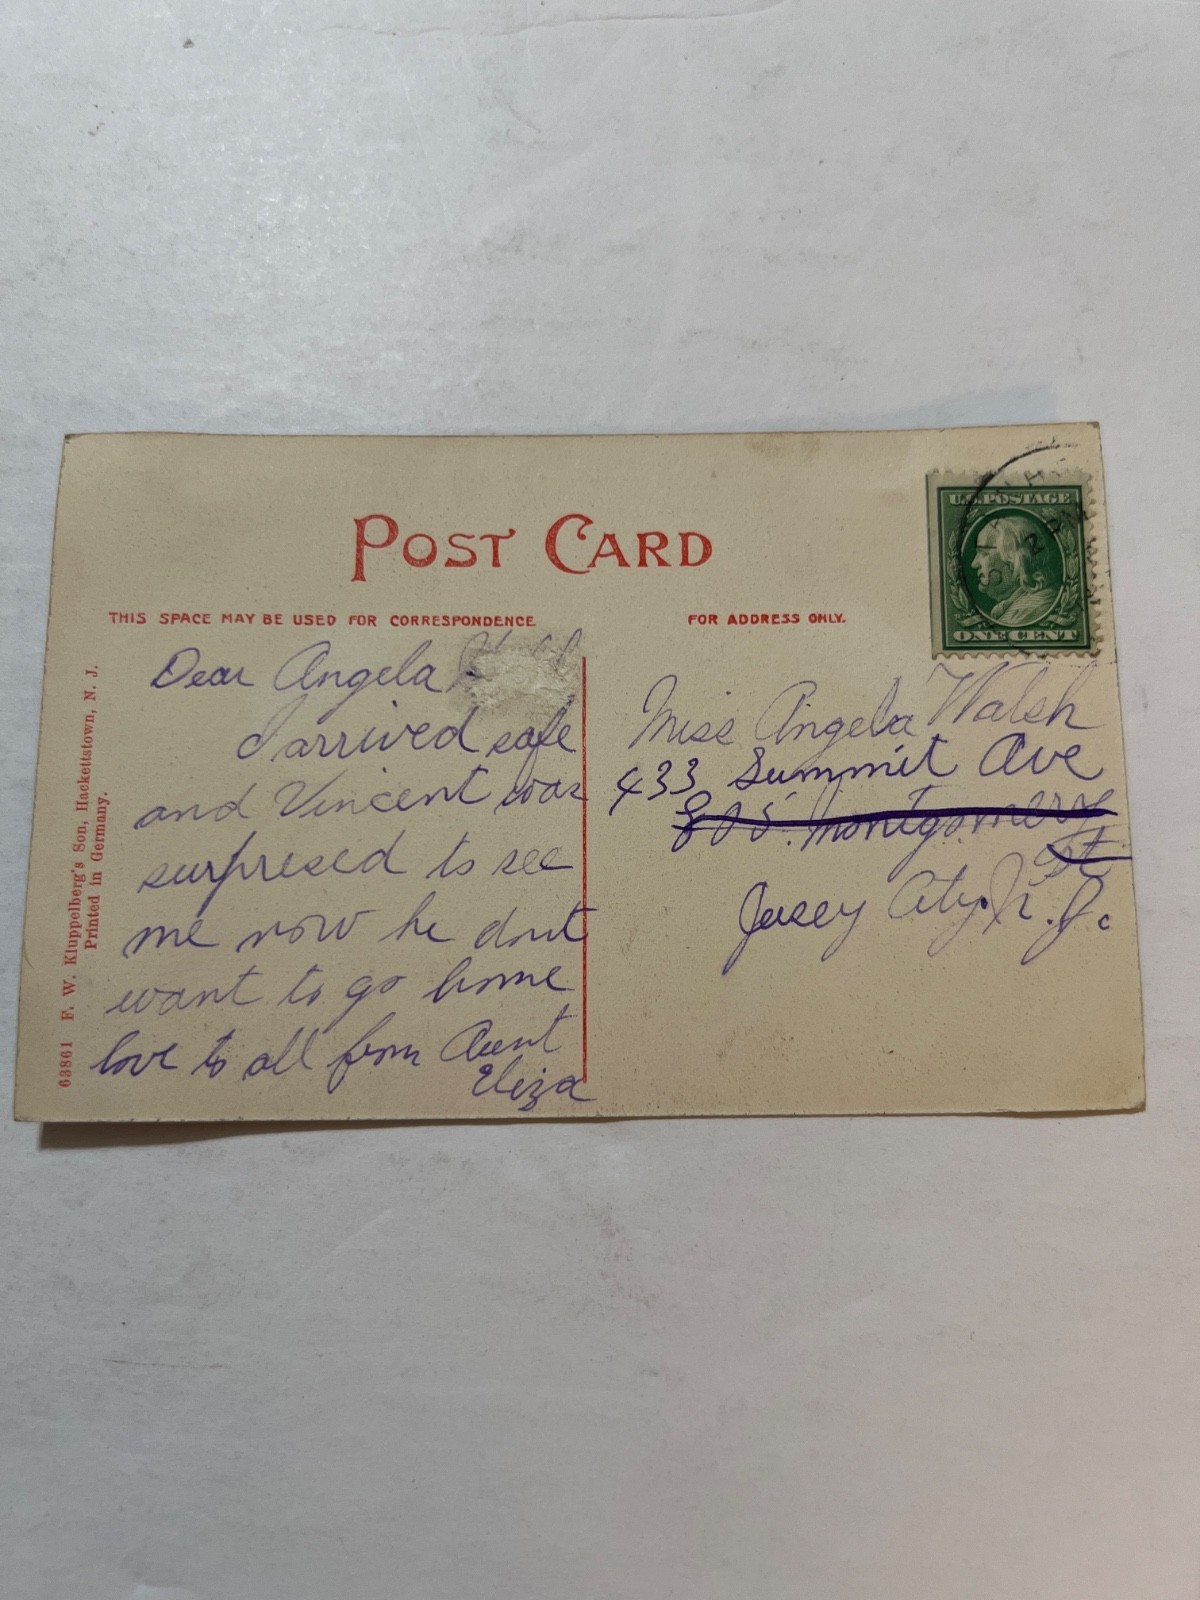 POST CARD
THIS SPACE MAY BE USED FOR CORRESPONDENCE
FOR ADDRESS ONLY.
U.S. POSTAGE
ONE CENT
63861 F. W. Kluppelberg's Son, Hackettstown, N. J.
Printed in Germany.
Dear Angela
I arrived safe
and Vincent was
surpresed to see
me now he dont
want to go home
love to all from Aunt
Eliza
Miss Angela Walsh
433 Summit Ave
805 Montgomery
St
Jersey City. N. J.